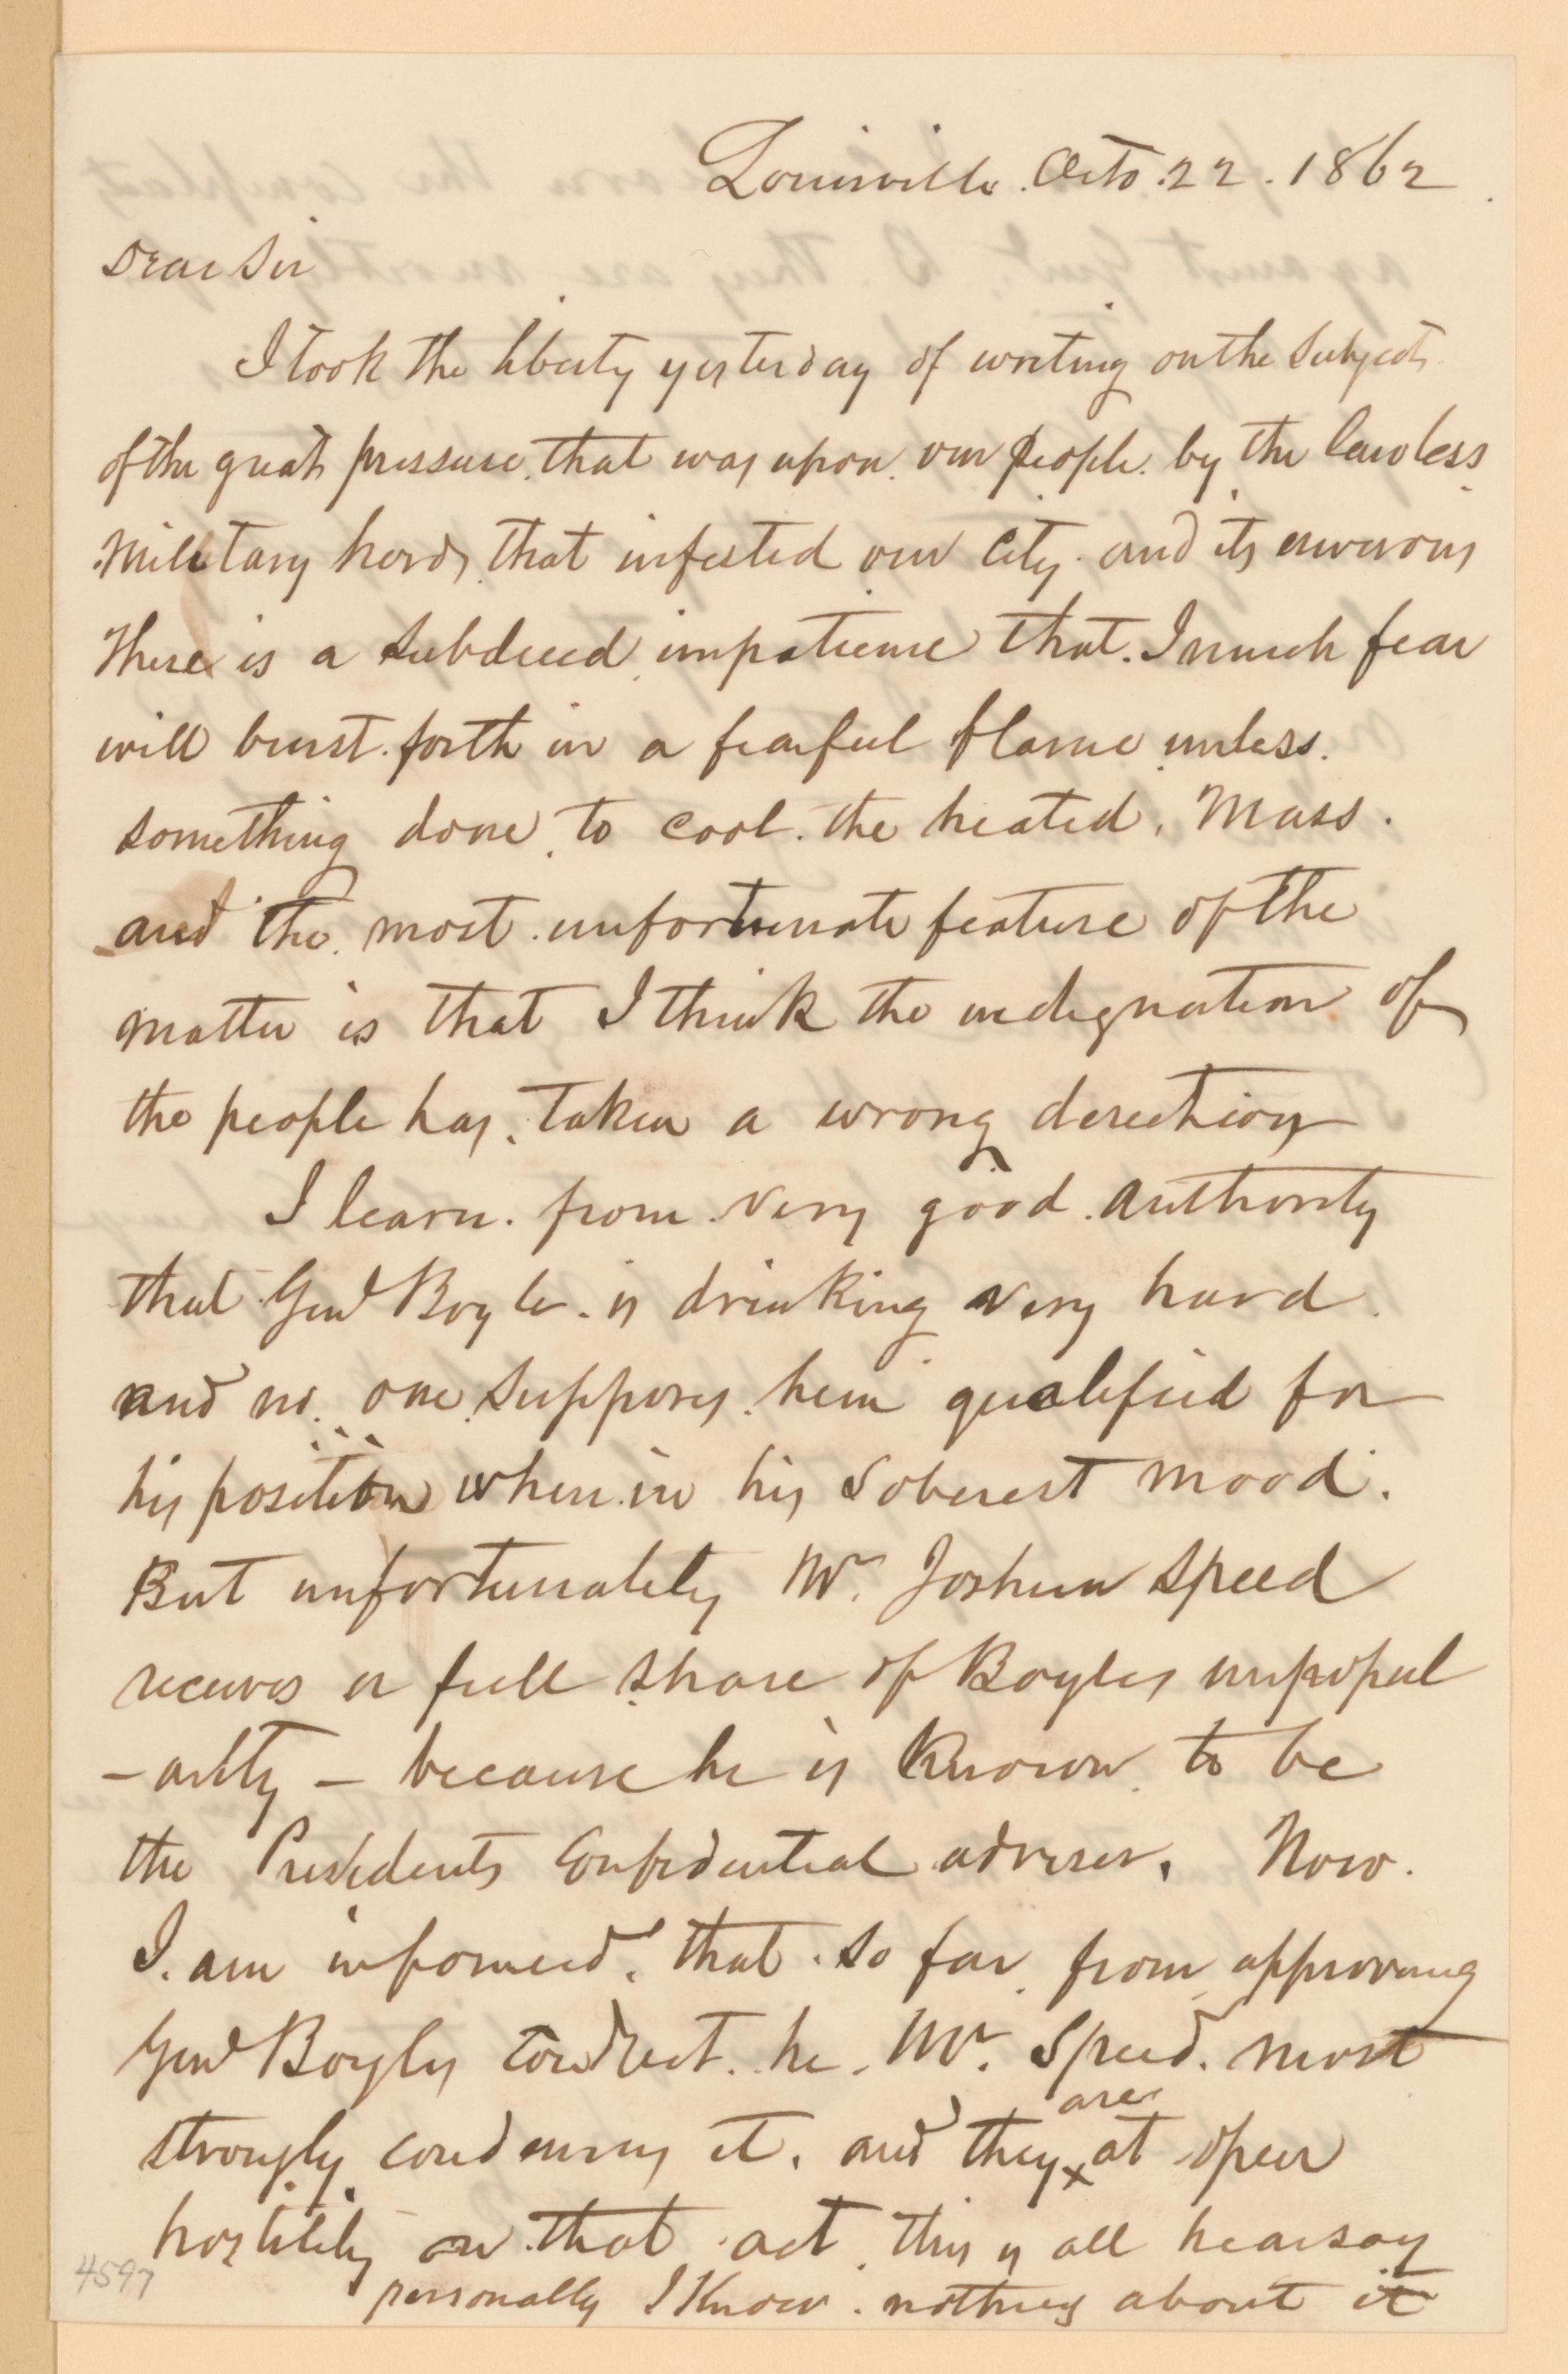 Louisville. Octo. 22. 1862
Dear Sir
I took the liberty yesterday of writing on the subject
of the great pressure that was upon our people by the lawless
military hords, that infested our City. and its environs
There is a subdued impatience that. I much fear
will burst forth in a fearful flame unless.
something done to cool. the heated. Mass.
and the most unfortunate feature of the
matter is that I think the indignation of
the people has taken a wrong direction
I learn. from very good authority
that Genl Boyle. is drinking very hard
and no. one supposes him qualified for
his position when in his soberest mood.
But unfortunately Mr. Joshua Speed
receives a full share of Boyles unpopul
-arity - because he is known to be
the Presidents Confidential adviser. Now.
I. am informed. that. so far from approving
Genl Boyles conduct. he. Mr. Speed. most
strongly condemns it. and they are at open
hostility on that act. this is all hearsay
personally I know. nothing about it
4597